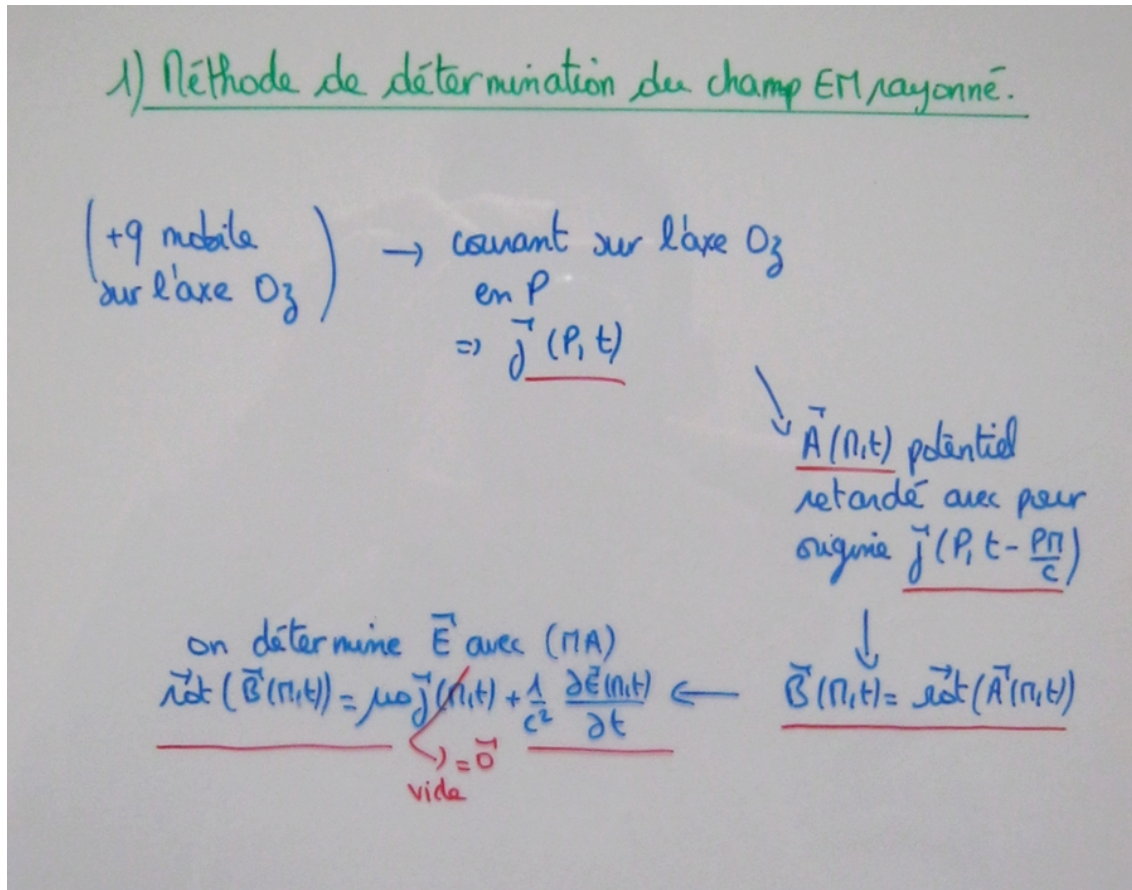 1) Méthode de détermination du champ EM rayonné.
(+q mobile sur l'axe Oz) → courant sur l'axe Oz
en P
=> \vec{j}(P, t)
\vec{A}(M,t) potentiel
retardé avec pour
origine \vec{j}(P, t - \frac{PM}{c})
↓
\vec{B}(M,t) = \vec{rot}(\vec{A}(M,t))
←
on détermine \vec{E} avec (MA)
\vec{rot}(\vec{B}(M,t)) = μ₀\vec{j}(M,t) + \frac{1}{c^2} \frac{∂\vec{E}(M,t)}{∂t}
= \vec{0}
vide